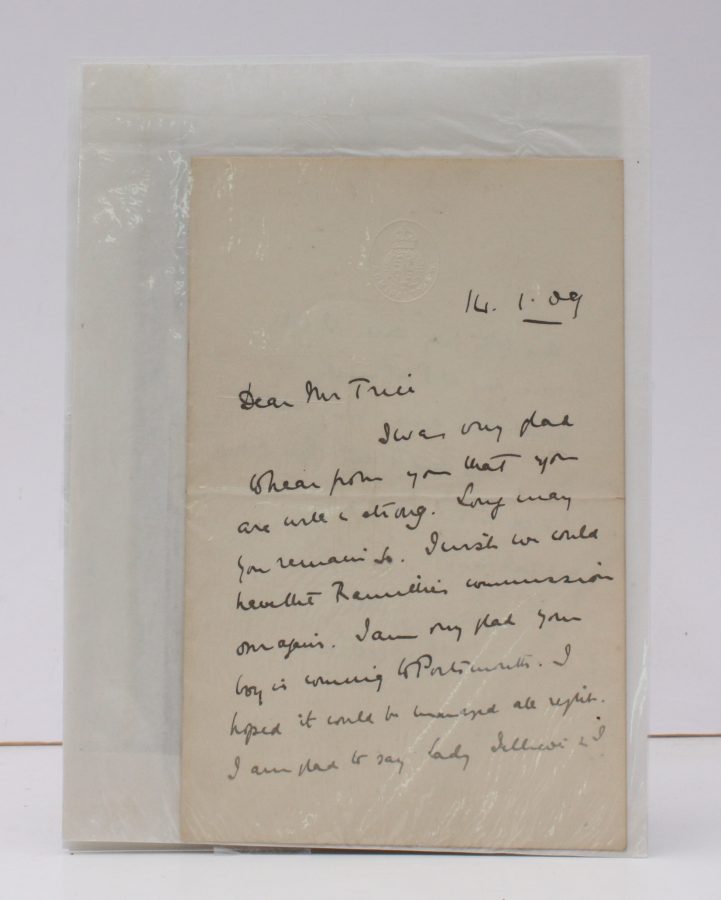 14. 1. 09
Dear Mr Trice
I was very glad
to hear from you that you
are well & strong. Long may
you remain so. I wish we could
have that Ramillies commission
over again. I am very glad your
boy is coming to Portsmouth. I
hoped it could be managed all right.
I am glad to say Lady Jellicoe & I